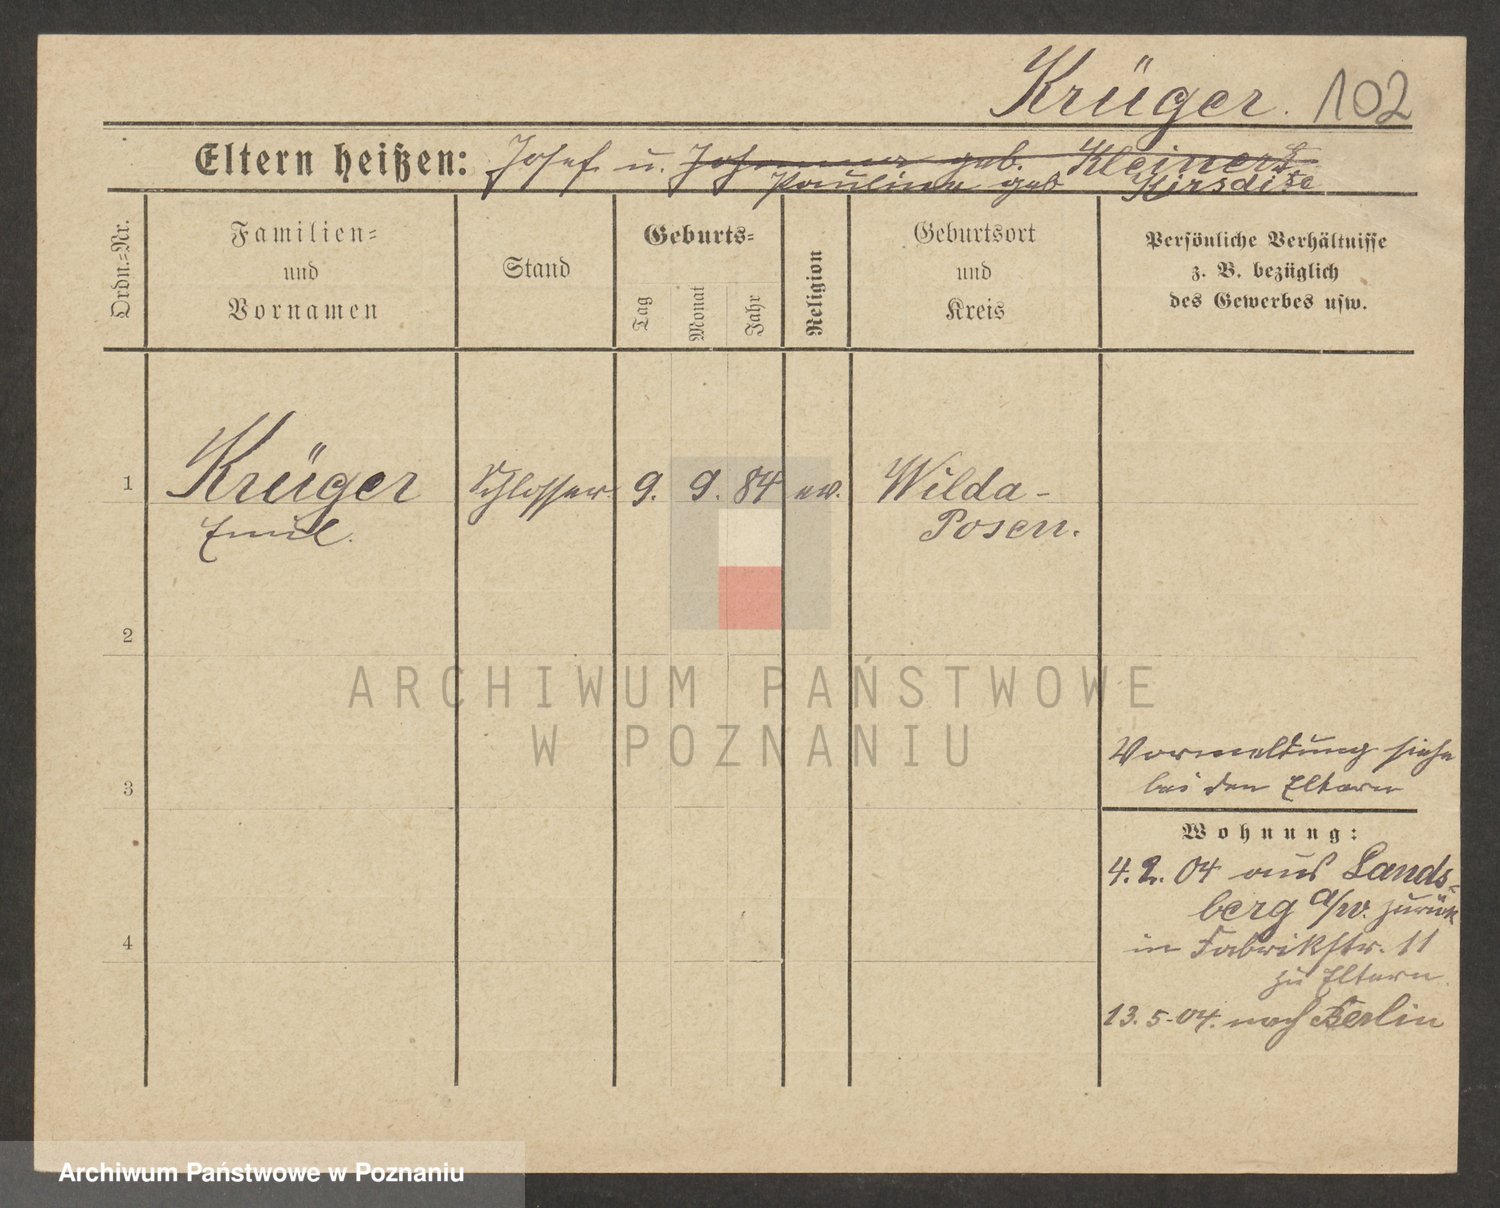 Krüger. 102
Eltern heißen: Josef u. Johanna geb. Kleinert
Pauline geb
Ordn.=Nr.
Familien=
und
Vornamen
Stand
Geburts=
Tag
Monat
Jahr
Religion
Geburtsort
und
Kreis
Persönliche Verhältnisse
z. B. bezüglich
des Gewerbes usw.
1
Krüger Schlosser 9. 9. 84 ev. Wilda-
Emil. Posen.
2
3
4
Vormeldung siehe
bei den Eltern
Wohnung:
4. 2. 04 aus Lands-
berg a/W. zurück
in Fabrikstr. 11
zu Eltern.
13. 5. 04. nach Berlin
ARCHIWUM PAŃSTWOWE
W POZNANIU
Archiwum Państwowe w Poznaniu